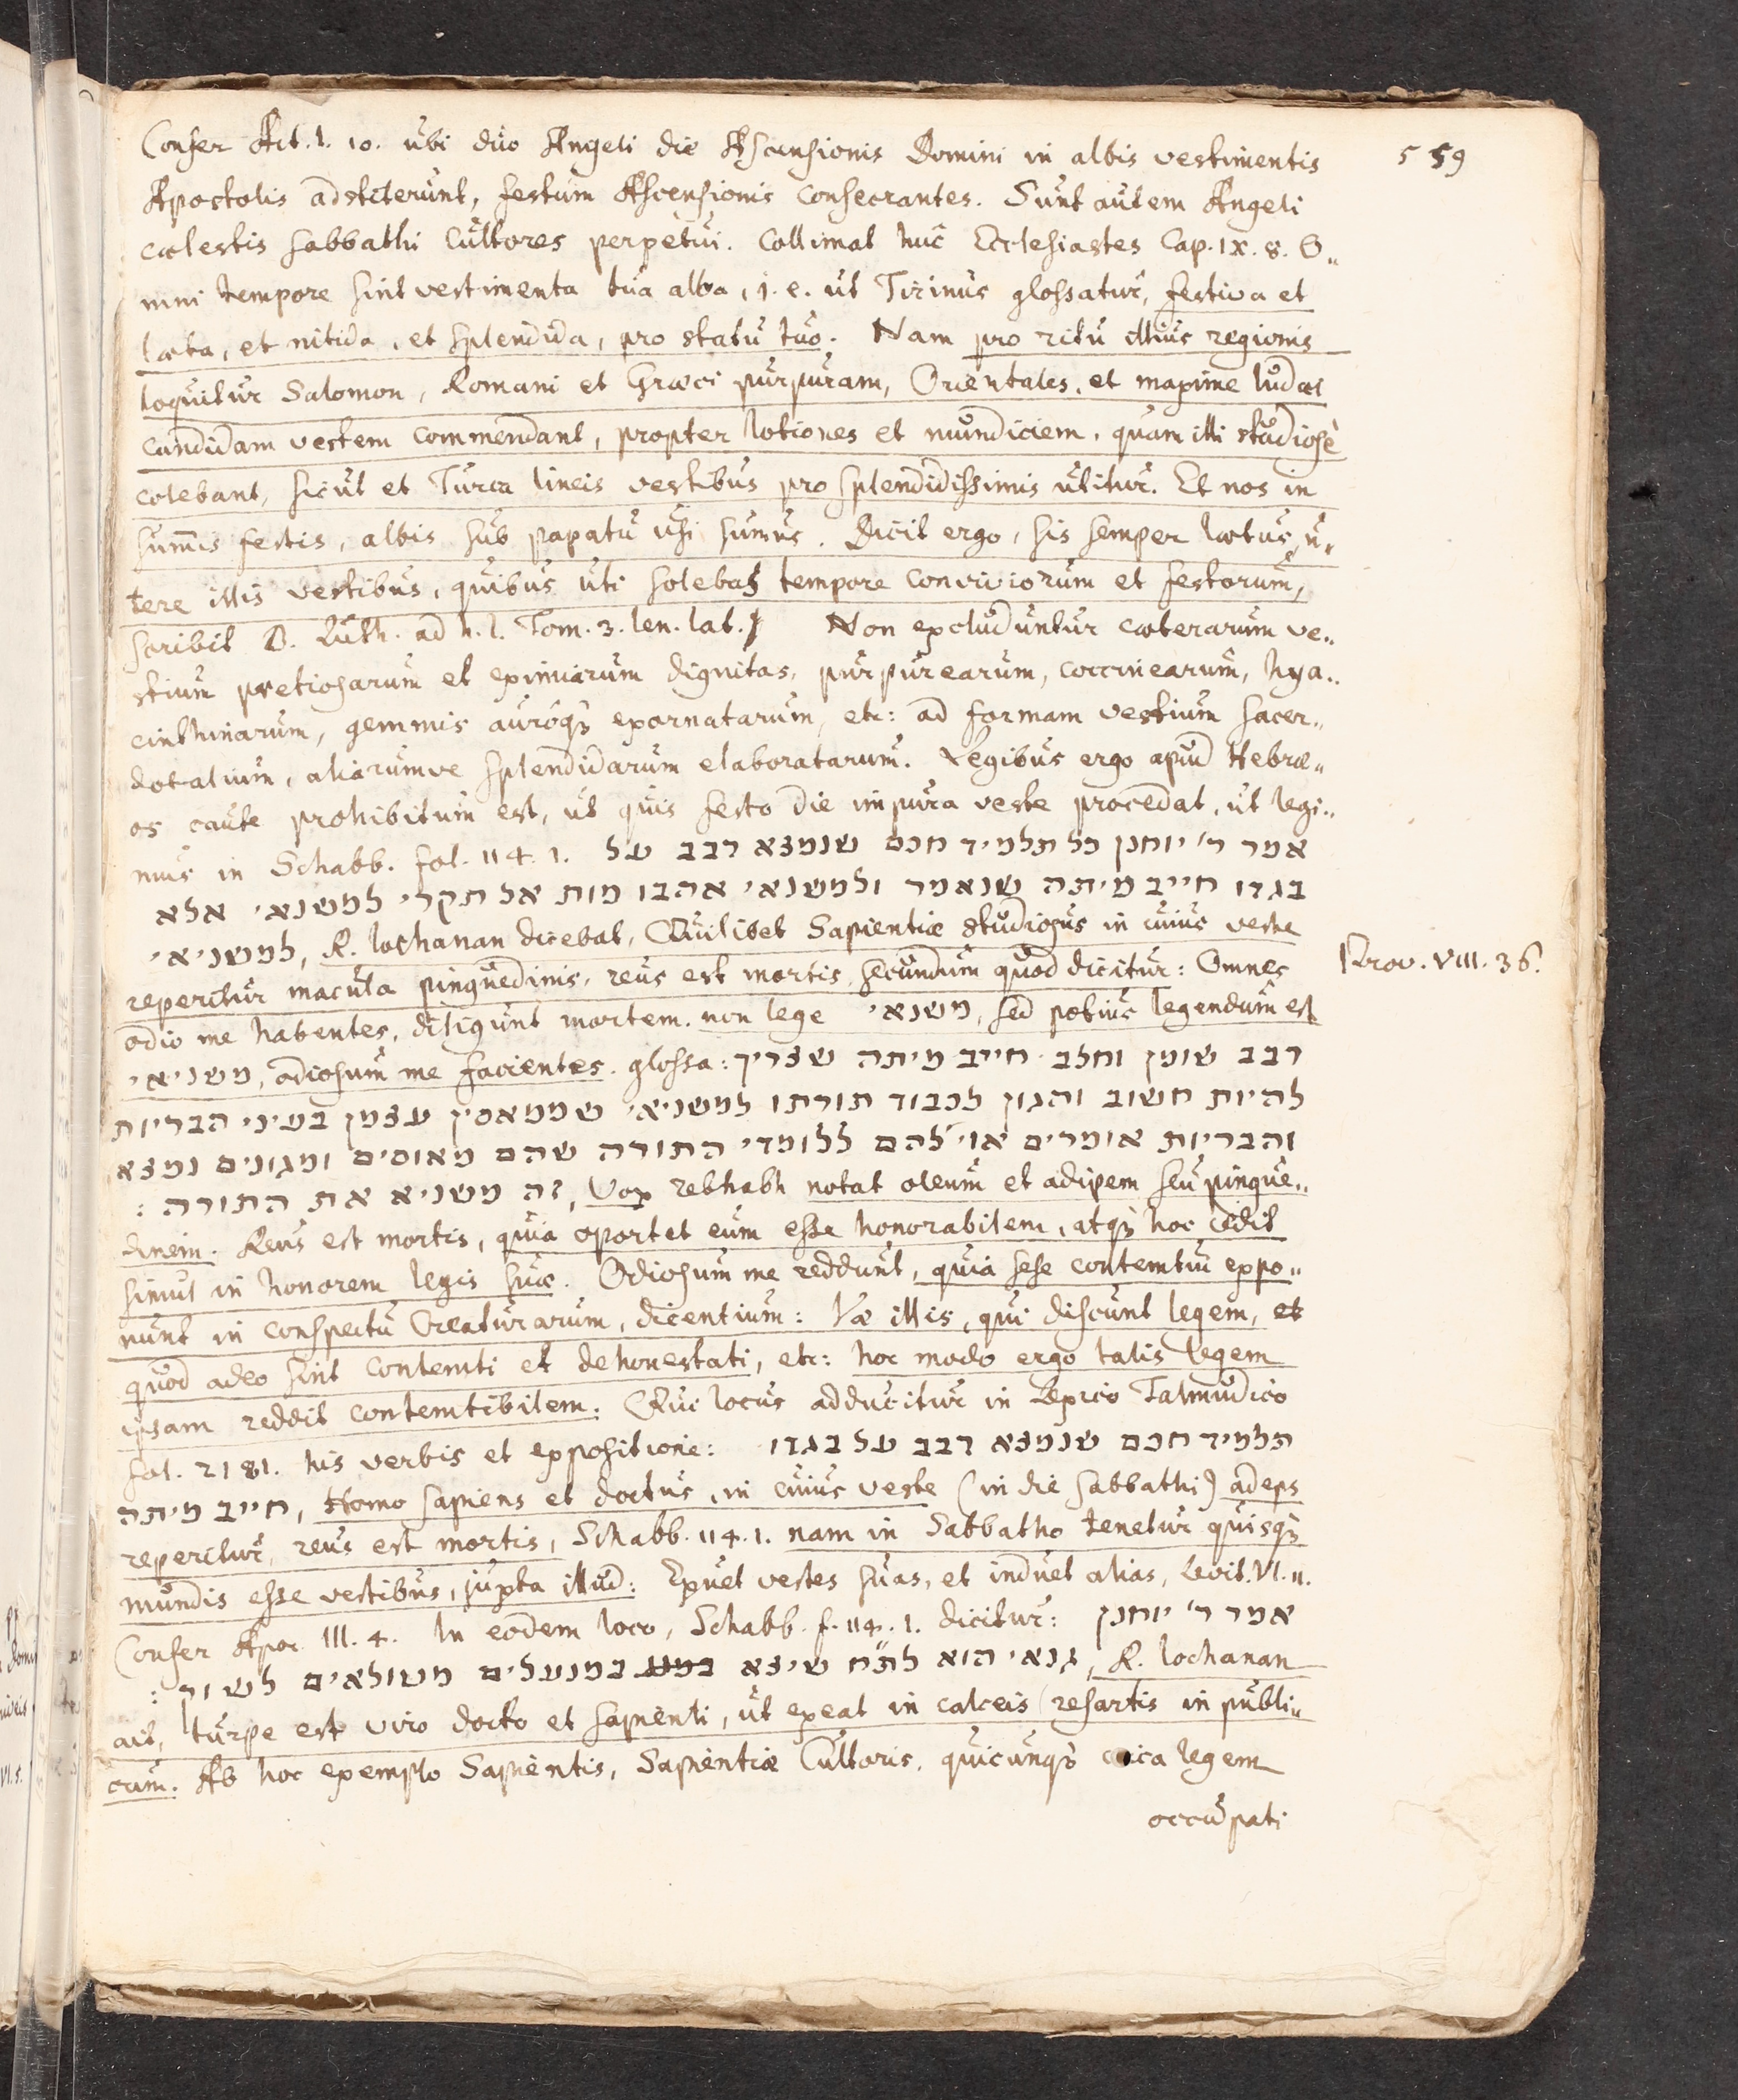 559
Confer Act. I. 10. ubi duo Angeli die Ascensionis Domini in albis vestimentis
Apostolis adstiterunt, festum Ascensionis consecrantes. Sunt autem Angeli
cælestis sabbathi Cultores perpetui. Collimat huc Ecclesiastes Cap. IX. 8. O„
mni tempore sint vestimenta tua alba, i. e. ut Tirinus glossatur, festiva et
læta, et nitida, et splendida, pro statu tuo. Nam pro ritu illius regionis
loquitur Salomon, Romani et Græci purpuram, Orientales, et maxime Iudæi
candidam vestem commendant, propter lotiones et mundiciem, quam illi studiosè
colebant, sicut et Turca lineis vestibus pro splendidissimis utitur. Et nos in
sum̃is festis, albis sub papatu usi sumus. Dicit ergo, sis semper lætus, u„
tere illis vestibus, quibus uti solebas tempore conviviorum et festorum,
scribit D. Luth. ad h. l. Tom. 3. Ien. lat. Non excluduntur cæterarum ve„
stium pretiosarum et eximiarum dignitas, purpurearum, coccinearum, hya„
cinthinarum, gemmis auroq₃ exornatarum, etc: ad formam vestium sacer„
dotalium, aliarumve splendidarum elaboratarum. Legibus ergo apud Hebræ„
os caute prohibitum est, ut quis festo die impura veste procedat, ut legi„
mus in Schabb. fol. 114. 1. אמר ר׳ יוחנן כל תלמיד חכם שנמצא רבב על
בגדו חייב מיתה שנאמר ולמשנאי אהבו מות אל תקרי למשנאי אלא
למשניאי, R. Iochanan dicebat, Quilibet Sapientiæ studiosus in cuius veste
reperitur macula pinguedinis, reus est mortis secundum quod dicitur: Omnes
Prov. VIII. 36.
odio me habentes, diligunt mortem. non lege משנאי, sed potius legendum est
משניאי, odiosum me facientes. glossa: רבב שומן וחלב חייב מיתה שצריך
להיות חשוב והגון לכבוד תורתו למשניאי שממאסין עצמן בעיני הבריות
והבריות אומרים אוי להם ללומדי התורה שהם מאוסים ומגונים נמצא
זה משניא את התורה:, Vox rebhabh notat oleum et adipem seu pingue„
dinem. Reus est mortis, quia oportet eum esse honorabilem, atq₃ hoc cedit
simul in honorem legis suæ. Odiosum me reddunt, quia sese contemtui expo„
nunt in conspectu Creaturarum, dicentium: Væ illis, qui discunt legem, et
quod adeo sint contemti et dehonestati, etc: hoc modo ergo talis legem
ipsam reddit contemtibilem. Qui locus adducitur in Lexico Talmudico
fol. 2181. his verbis et expositione: תלמיד חכם שנמצא רבב על בגדו
חייב מיתה, Homo sapiens et doctus, in cuius veste (in die sabbathi) adeps
reperitur, reus est mortis, Schabb. 114. 1. nam in Sabbatho tenetur quisq₃
mundis esse vestibus, juxta illud: Exuet vestes suas, et induet alias, Levit. VI. 11.
Confer Apoc. III. 4. In eodem loco, Schabb. f. 114. 1. dicitur: אמר ר׳ יוחנן
גנאי הוא לת״ח שיצא במנעלים משולאים לשוק:, R. Iochanan
ait, turpe est viro docto et sapienti, ut exeat in calceis resartis in publi„
cum. Ab hoc exemplo Sapientis, Sapientiæ Cultoris, quicunq₃ circa legem
occupati